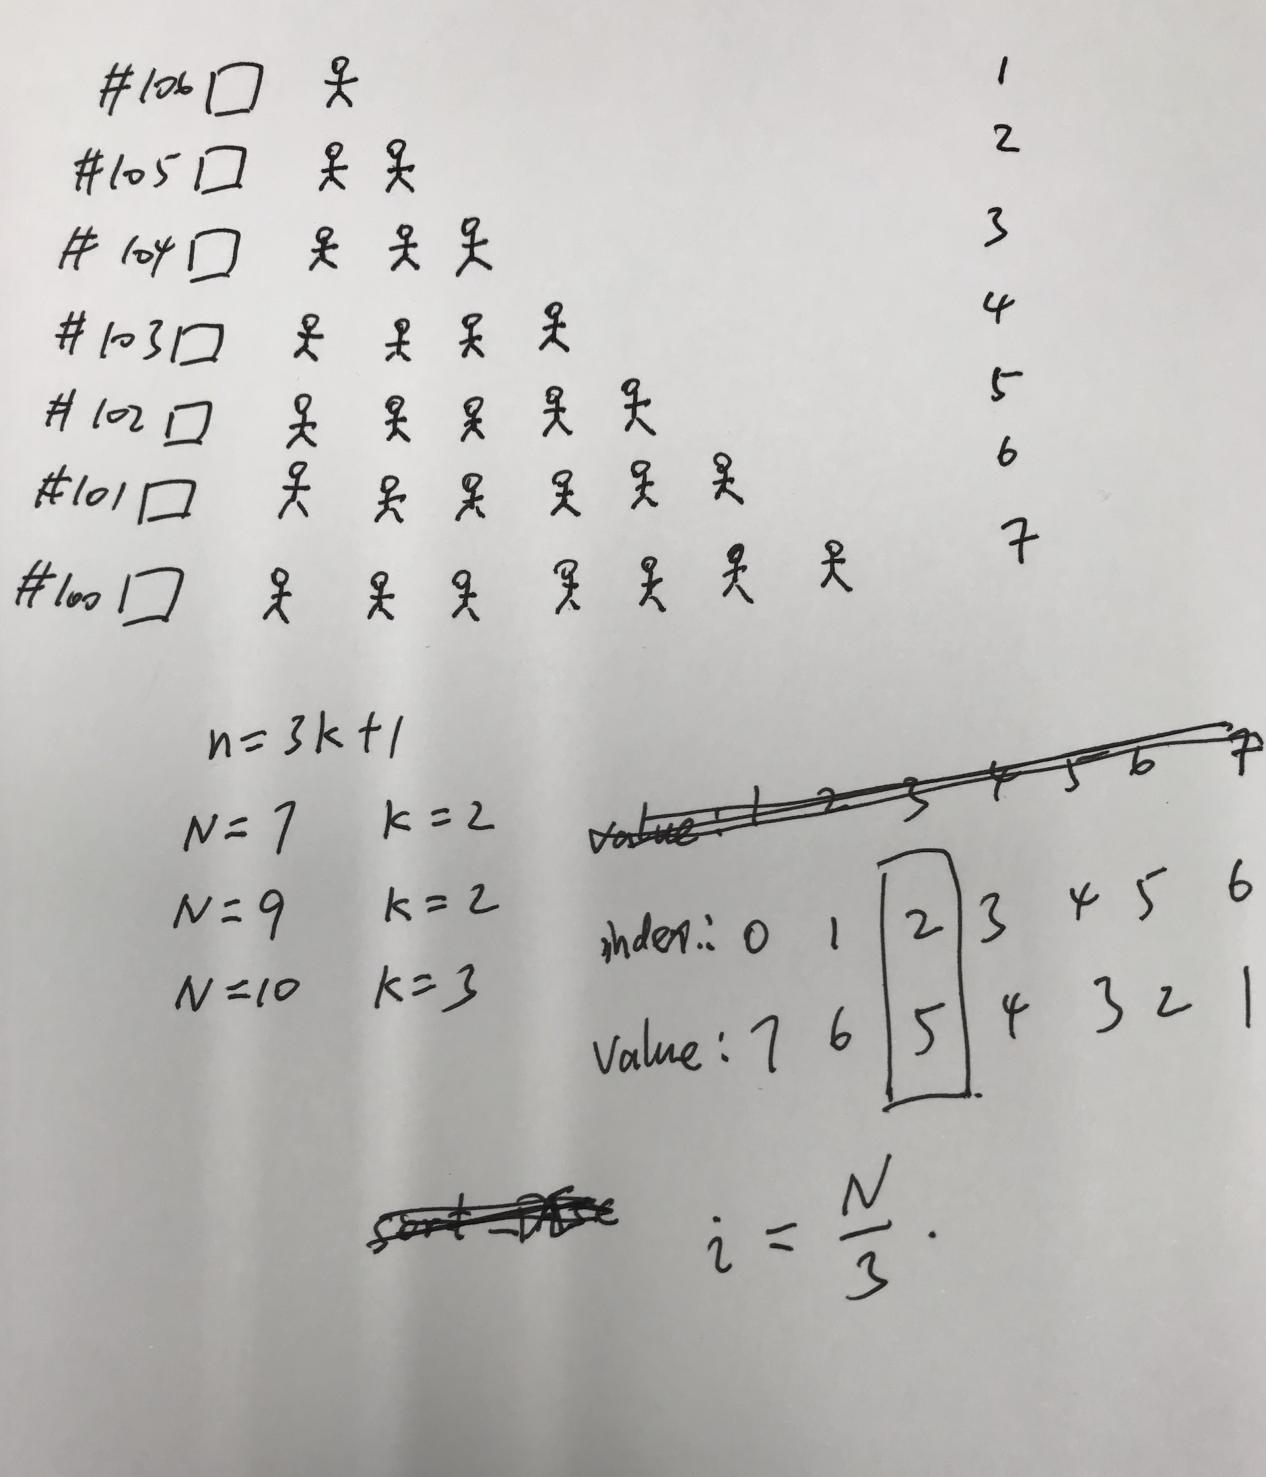 #106 1
#105 2
#104 3
#103 4
#102 5
#101 6
#100 7
n=3k+1
N=7 k=2
N=9 k=2
N=10 k=3
value: 1 2 3 4 5 6 7
index: 0 1 2 3 4 5 6
Value: 7 6 5 4 3 2 1
sort
i = N/3.